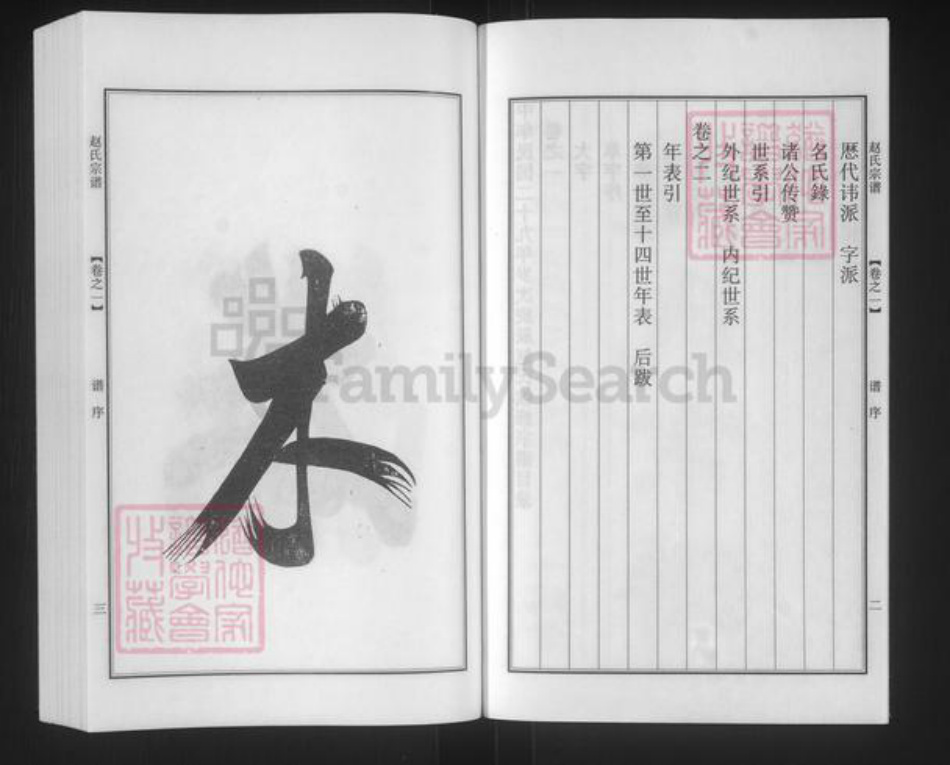 赵氏宗谱
【卷之一】
谱序
二
歷代讳派 字派
名氏錄
诸公传赞
世系引
外纪世系 内纪世系
卷之二
年表引
第一世至十四世年表 后跋
木
赵氏宗谱
【卷之一】
谱序
三
FamilySearch